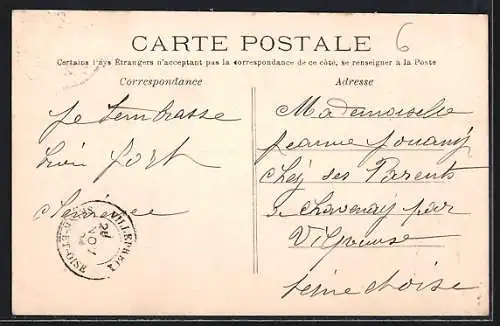 CARTE POSTALE
6
Certains Pays Étrangers n'acceptant pas la correspondance de ce côté, se renseigner à la Poste
Correspondance
Adresse
Je t'embrasse
bien fort
Mademoiselle
Jeanne Jouanny
chez ses Parents
à Chavenay par
Villepreuse
Seine et oise
VILLEPREUX
SEINE-ET-OISE
NOV